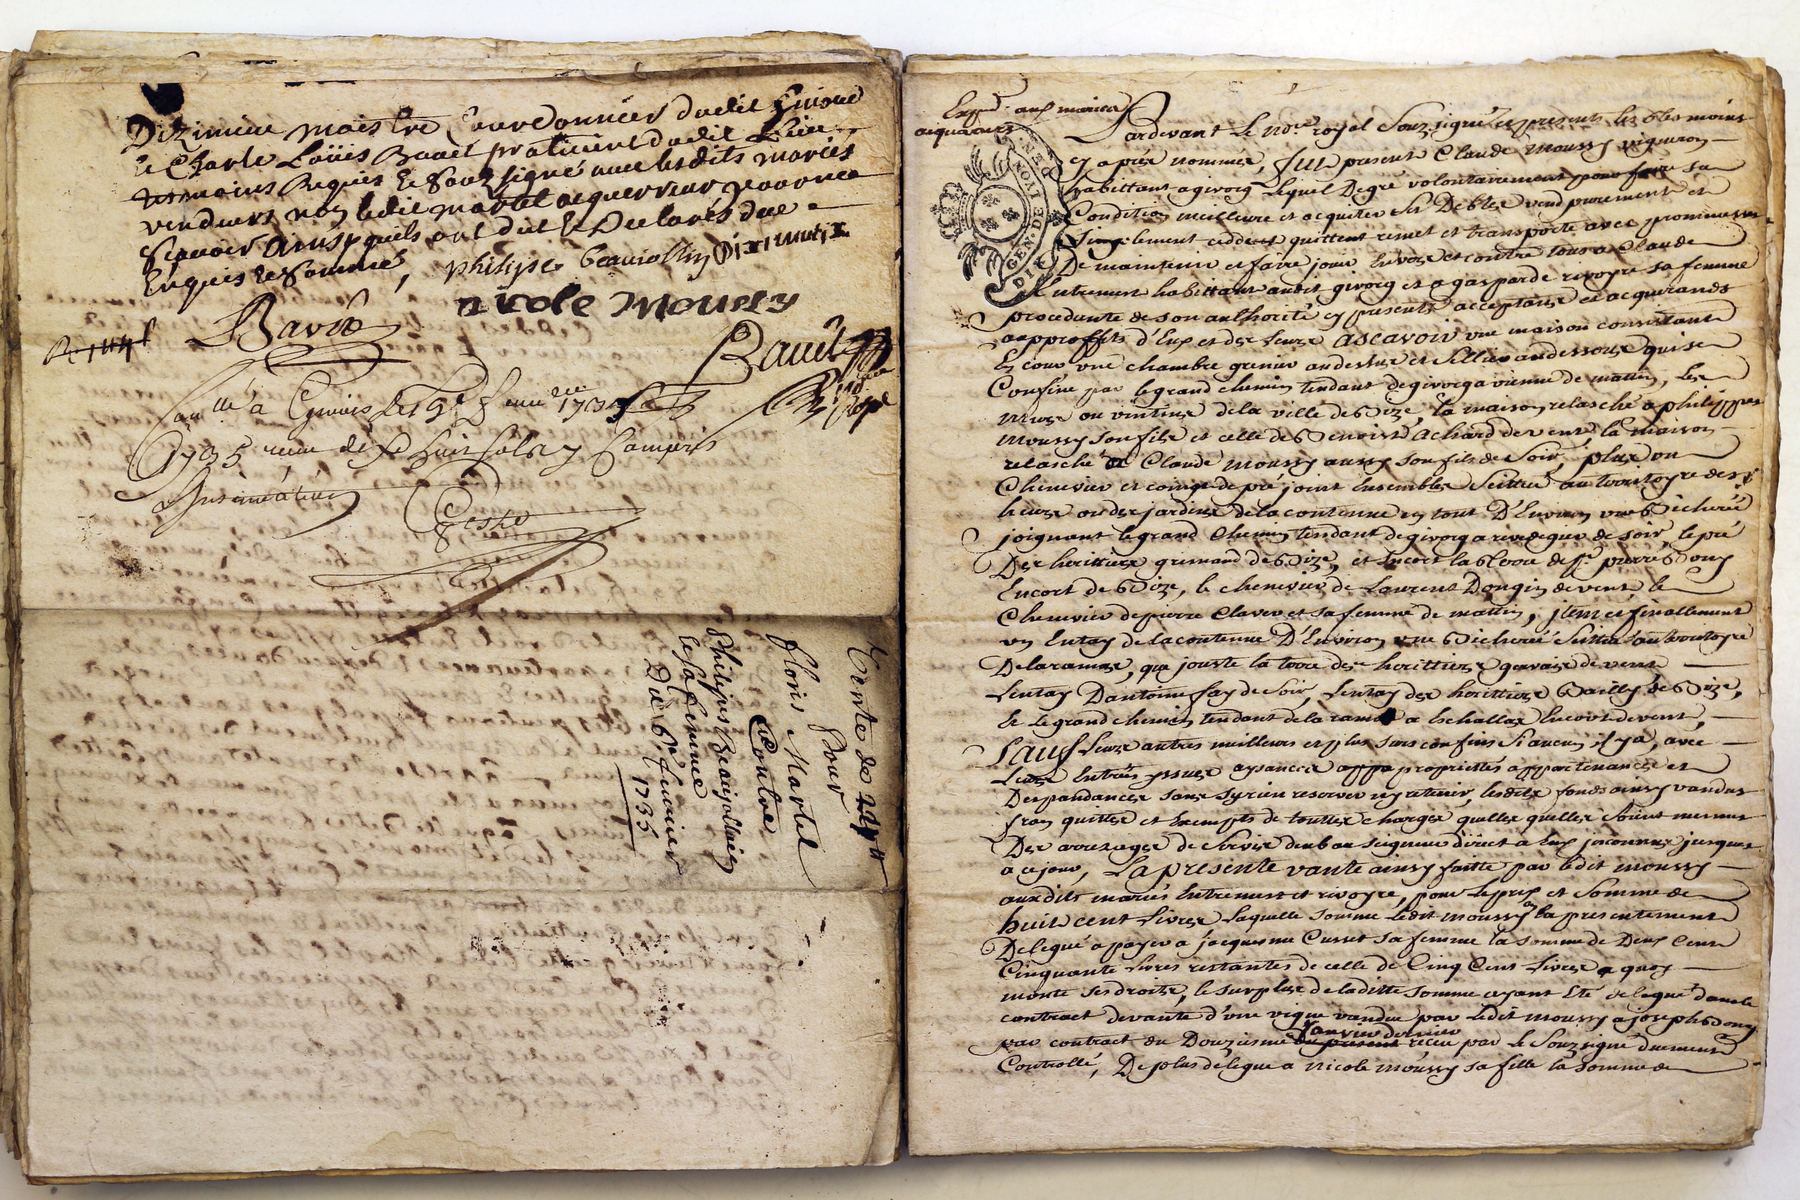 Diziminieu maistre Courdonnier dudit Givors
& Charle Loüis Bavet praticient dudit Lieu
tesmoins Requis & Soubsigné avec lesdits mariés
vendeurs non ledit martel acquerreur
Scavoir ainsy quils ont dit & Declarés de ce
Enquis & Sommés
philipes beaujollin Diziminix
nicole Moussy
Bavet
Bavet
a Givors le 9e 1735
1735 receu de Compris
Insinuation
Vente de
pour
floris Martel
Contre
Philipes Beaujollin
& Sa femme
Du 6e fevrier
1735
Exp.
acquereurs
GEN. DE LYON
DIX DEN
Pardevant Le No.re royal Souzsigné et presents les tesmoins
cy aprèz nommés, fut present Claude Moussy vigneron
habittant a givorg lequel De gré volontairement pour faire sa
Condition meilleure et acquiter ses Debtes vend purement et
simplement cedde et quitte remet et transporte avec promesse
De maintenir et faire jouir Envers et contre tous a Claude
Entremont habittant audit givorg et a gasparde rivoyre sa femme
procedante de son authorité cy presents acceptants et acquerands
au proffits d'Eux et des leurs ascavoir une maison consistante
En cour une chambre grenier au dessus et cellier au dessous qui se
Confine par le grand chemin tendant de givorg a vienne de mattin, les
murs ou vintins de la ville de bize, la maison relasché a philippes
moussy son fils et celle de benoist achard de vent la maison
relasché a Claude moussy aussy son fils de Soir, plus un
Chenevier et coing de pré joint Ensembles Scittué au territoyre des
lieurs ou des jardins de la contenue en tout D'Environ une bicheréé
joignant le grand Chemin tendant de givorg a rivedegier de soir, le pré
Des herittiers grimand de bize, et Encort la terre de Sr pierre
Encort de bize, le chenevier de Laurent Dongin de vent le
Chenevier de pierre Claver et sa femme de mattin, jtem et finallement
un Entay de la contenue D'Environ une bicheréé Scittué au territoyre
De laramas, qui jouste la terre des herittiers gervais de vent
Lentay Dantoine fay de Soir, Lentay des herittiers bailly de bize,
& le grand chemin tendant de la rama a Eschallas Encort de vent,
Sauf leurs autres meilleurs et plus surs confins Si aucun il y a, avec
Leurs Entrés yssues aysances appropriettés appartenances et
Despandances sans sy rien reserver ny retenir, lesdits fonds ainsy vandus
fran quittes et Exempts de touttes charges quelles quelles soient mesmes
Des arrerages de Servis deub au Seigneur direct a Eux jnconnus jusques
a ce jour, La presente vante ainsy faitte par ledit moussy
auxdits mariés Entremont et rivoyre, pour le prix et Somme de
huit cent Livres Laquelle somme Ledit moussy a presentement
Delegué a payer a jacques me Cusset sa femme la somme de Deux Cent
Cinquante livres restantes de celle de Cinq Cens Livres a quoy
monte ses droits, le surplus de laditte somme ayant Eté delegué dans le
contract de vante d'une vigne vandue par ledit moussy a joseph donzy
par contract du Douzieme janvier dernier receu par le Souzsigné duement
Controllé, De plus delegue a nicole moussy sa fille la somme de